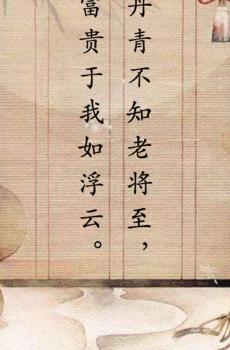 丹青不知老将至，
富贵于我如浮云。